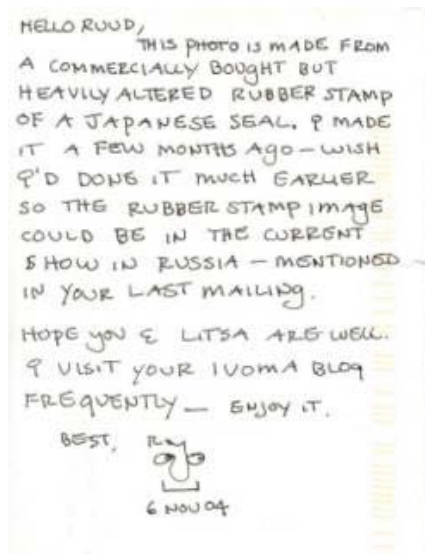 HELLO RUUD,
THIS PHOTO IS MADE FROM
A COMMERCIALLY BOUGHT BUT
HEAVILY ALTERED RUBBER STAMP
OF A JAPANESE SEAL. I MADE
IT A FEW MONTHS AGO - WISH
I'D DONE IT MUCH EARLIER
SO THE RUBBER STAMP IMAGE
COULD BE IN THE CURRENT
SHOW IN RUSSIA - MENTIONED -
IN YOUR LAST MAILING.
HOPE YOU & LITSA ARE WELL.
I VISIT YOUR IUOMA BLOG
FREQUENTLY - ENJOY IT.
BEST, Ray
6 NOV 04